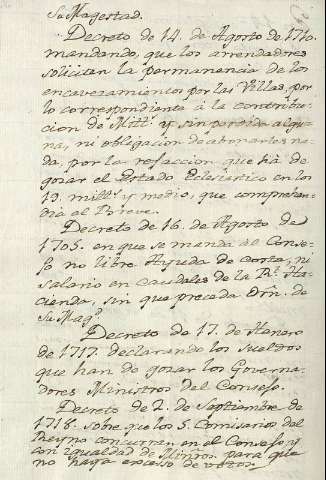 Su Magestad.
Decreto de 14. de Agosto de 1710.
mandando, que los arrendadores
soliciten la permanencia de los
encavezamientos por las Villas, por
lo correspondiente à la contribu-
cion de Mill.s y sin perdida algu-
na, ni obligacion de abonarles na-
da, por la refaccion que hà de
gozar el Estado Eclesiastico en los
19. mill.s y medio, que comprehen-
dia el Breve.
Decreto de 16. de Agosto de
1705. en que se manda al Conse-
jo no libre Ayuda de costa, ni
salario en caudales de la R.l Ha-
cienda, sin que preceda Orn. de
Su Mag.d
Decreto de 17. de Henero
de 1717. declarando los sueldos
que han de gozar los Governa-
dores Ministros del Consejo.
Decreto de 2. de Septiembre de
1718. sobre que los 5. Comisarios del
Reyno concurran en el Consejo, y
con igualdad de Minros. para que
no haya exceso de votos.